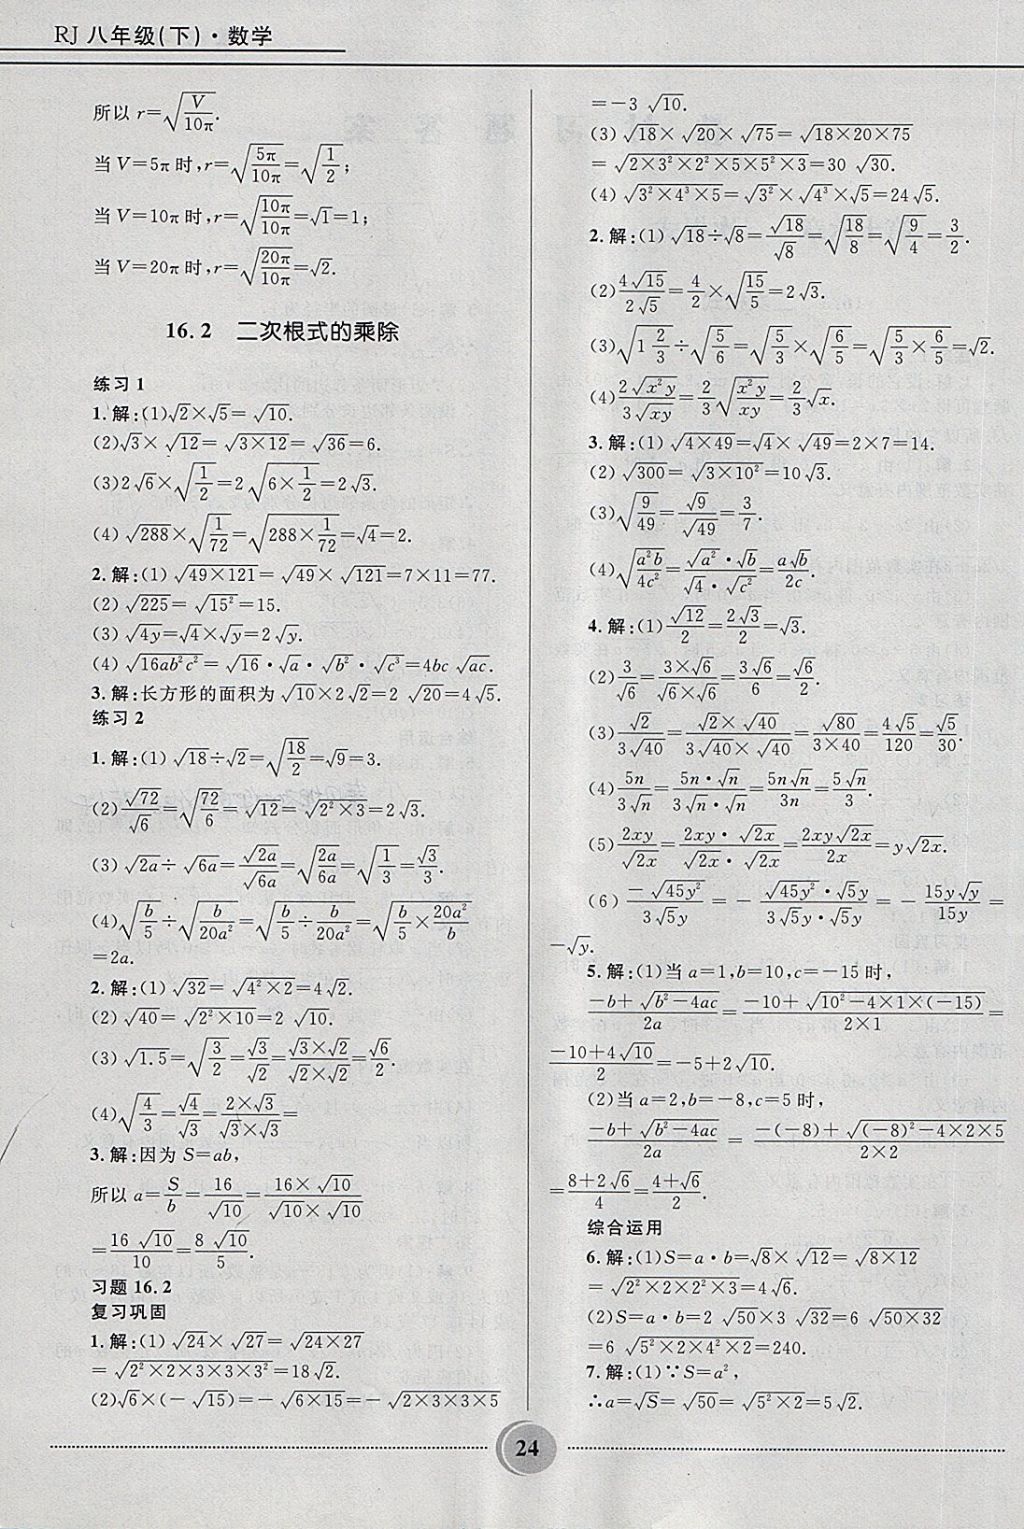 RJ 八年级(下)·数学
所以 r=√(V/10π).
当 V=5π 时,r=√(5π/10π)=√(1/2);
当 V=10π 时,r=√(10π/10π)=√1=1;
当 V=20π 时,r=√(20π/10π)=√2.
16.2 二次根式的乘除
练习 1
1.解:(1)√2×√5=√10.
(2)√3×√12=√(3×12)=√36=6.
(3)2√6×√(1/2)=2√(6×1/2)=2√3.
(4)√288×√(1/72)=√(288×1/72)=√4=2.
2.解:(1)√(49×121)=√49×√121=7×11=77.
(2)√225=√(15²)=15.
(3)√(4y)=√4×√y=2√y.
(4)√(16ab²c³)=√16·√a·√(b²)·√(c³)=4bc√(ac).
3.解:长方形的面积为√10×2√2=2√20=4√5.
练习 2
1.解:(1)√18÷√2=√(18/2)=√9=3.
(2)√72/√6=√(72/6)=√12=√(2²×3)=2√3.
(3)√(2a)÷√(6a)=√(2a)/√(6a)=√(2a/6a)=√(1/3)=√3/3.
(4)√(b/5)÷√(b/20a²)=√(b/5÷b/20a²)=√(b/5×20a²/b)
=2a.
2.解:(1)√32=√(4²×2)=4√2.
(2)√40=√(2²×10)=2√10.
(3)√1.5=√(3/2)=√3/√2=(√3×√2)/(√2×√2)=√6/2.
(4)√(4/3)=√4/√3=(2×√3)/(√3×√3)=
3.解:因为 S=ab,
所以 a=S/b=16/√10=(16×√10)/(√10×√10)
=16√10/10=8√10/5.
习题 16.2
复习巩固
1.解:(1)√24×√27=√(24×27)
=√(2²×2×3×3×3²)=18√2.
(2)√6×(-√15)=-√(6×15)=-√(2×3×3×5)
=-3√10.
(3)√18×√20×√75=√(18×20×75)
=√(2×3²×2²×5×5²×3)=30√30.
(4)√(3²×4³×5)=√(3²)×√(4³)×√5=24√5.
2.解:(1)√18÷√8=√18/√8=√(18/8)=√(9/4)=3/2.
(2)4√15/2√5=4/2×√(15/5)=2√3.
(3)√(1 2/3)÷√(5/6)=√(5/3)×√(6/5)=√(5/3×6/5)=√2.
(4)2√(x²y)/3√(xy)=2/3√(x²y/xy)=2/3√x.
3.解:(1)√(4×49)=√4×√49=2×7=14.
(2)√300=√(3×10²)=10√3.
(3)√(9/49)=√9/√49=3/7.
(4)√(a²b/4c²)=(√(a²)·√b)/(√4·√(c²))=a√b/2c.
4.解:(1)√12/2=2√3/2=√3.
(2)3/√6=(3×√6)/(√6×√6)=3√6/6=√6/2.
(3)√2/3√40=(√2×√40)/(3√40×√40)=√80/(3×40)=4√5/120=√5/30.
(4)5n/3√n=(5n·√n)/(3√n·√n)=5n√n/3n=5√n/3.
(5)2xy/√(2x)=(2xy·√(2x))/(√(2x)·√(2x))=2xy√(2x)/2x=y√(2x).
(6)-√(45y²)/3√(5y)=-(√(45y²)·√(5y))/(3√(5y)·√(5y))=-15y√y/15y=
-√y.
5.解:(1)当 a=1,b=10,c=-15 时,
(-b+√(b²-4ac))/2a=(-10+√(10²-4×1×(-15)))/(2×1)=
(-10+4√10)/2=-5+2√10.
(2)当 a=2,b=-8,c=5 时,
(-b+√(b²-4ac))/2a=(-(-8)+√((-8)²-4×2×5))/(2×2)
=(8+2√6)/4=(4+√6)/2.
综合运用
6.解:(1)S=a·b=√8×√12=√(8×12)
=√(2²×2×2²×3)=4√6.
(2)S=a·b=2√50×3√32=6√(50×32)
=6√(5²×2×4²×2)=240.
7.解:(1)∵S=a²,
∴a=√S=√50=√(5²×2)=5√2.
24